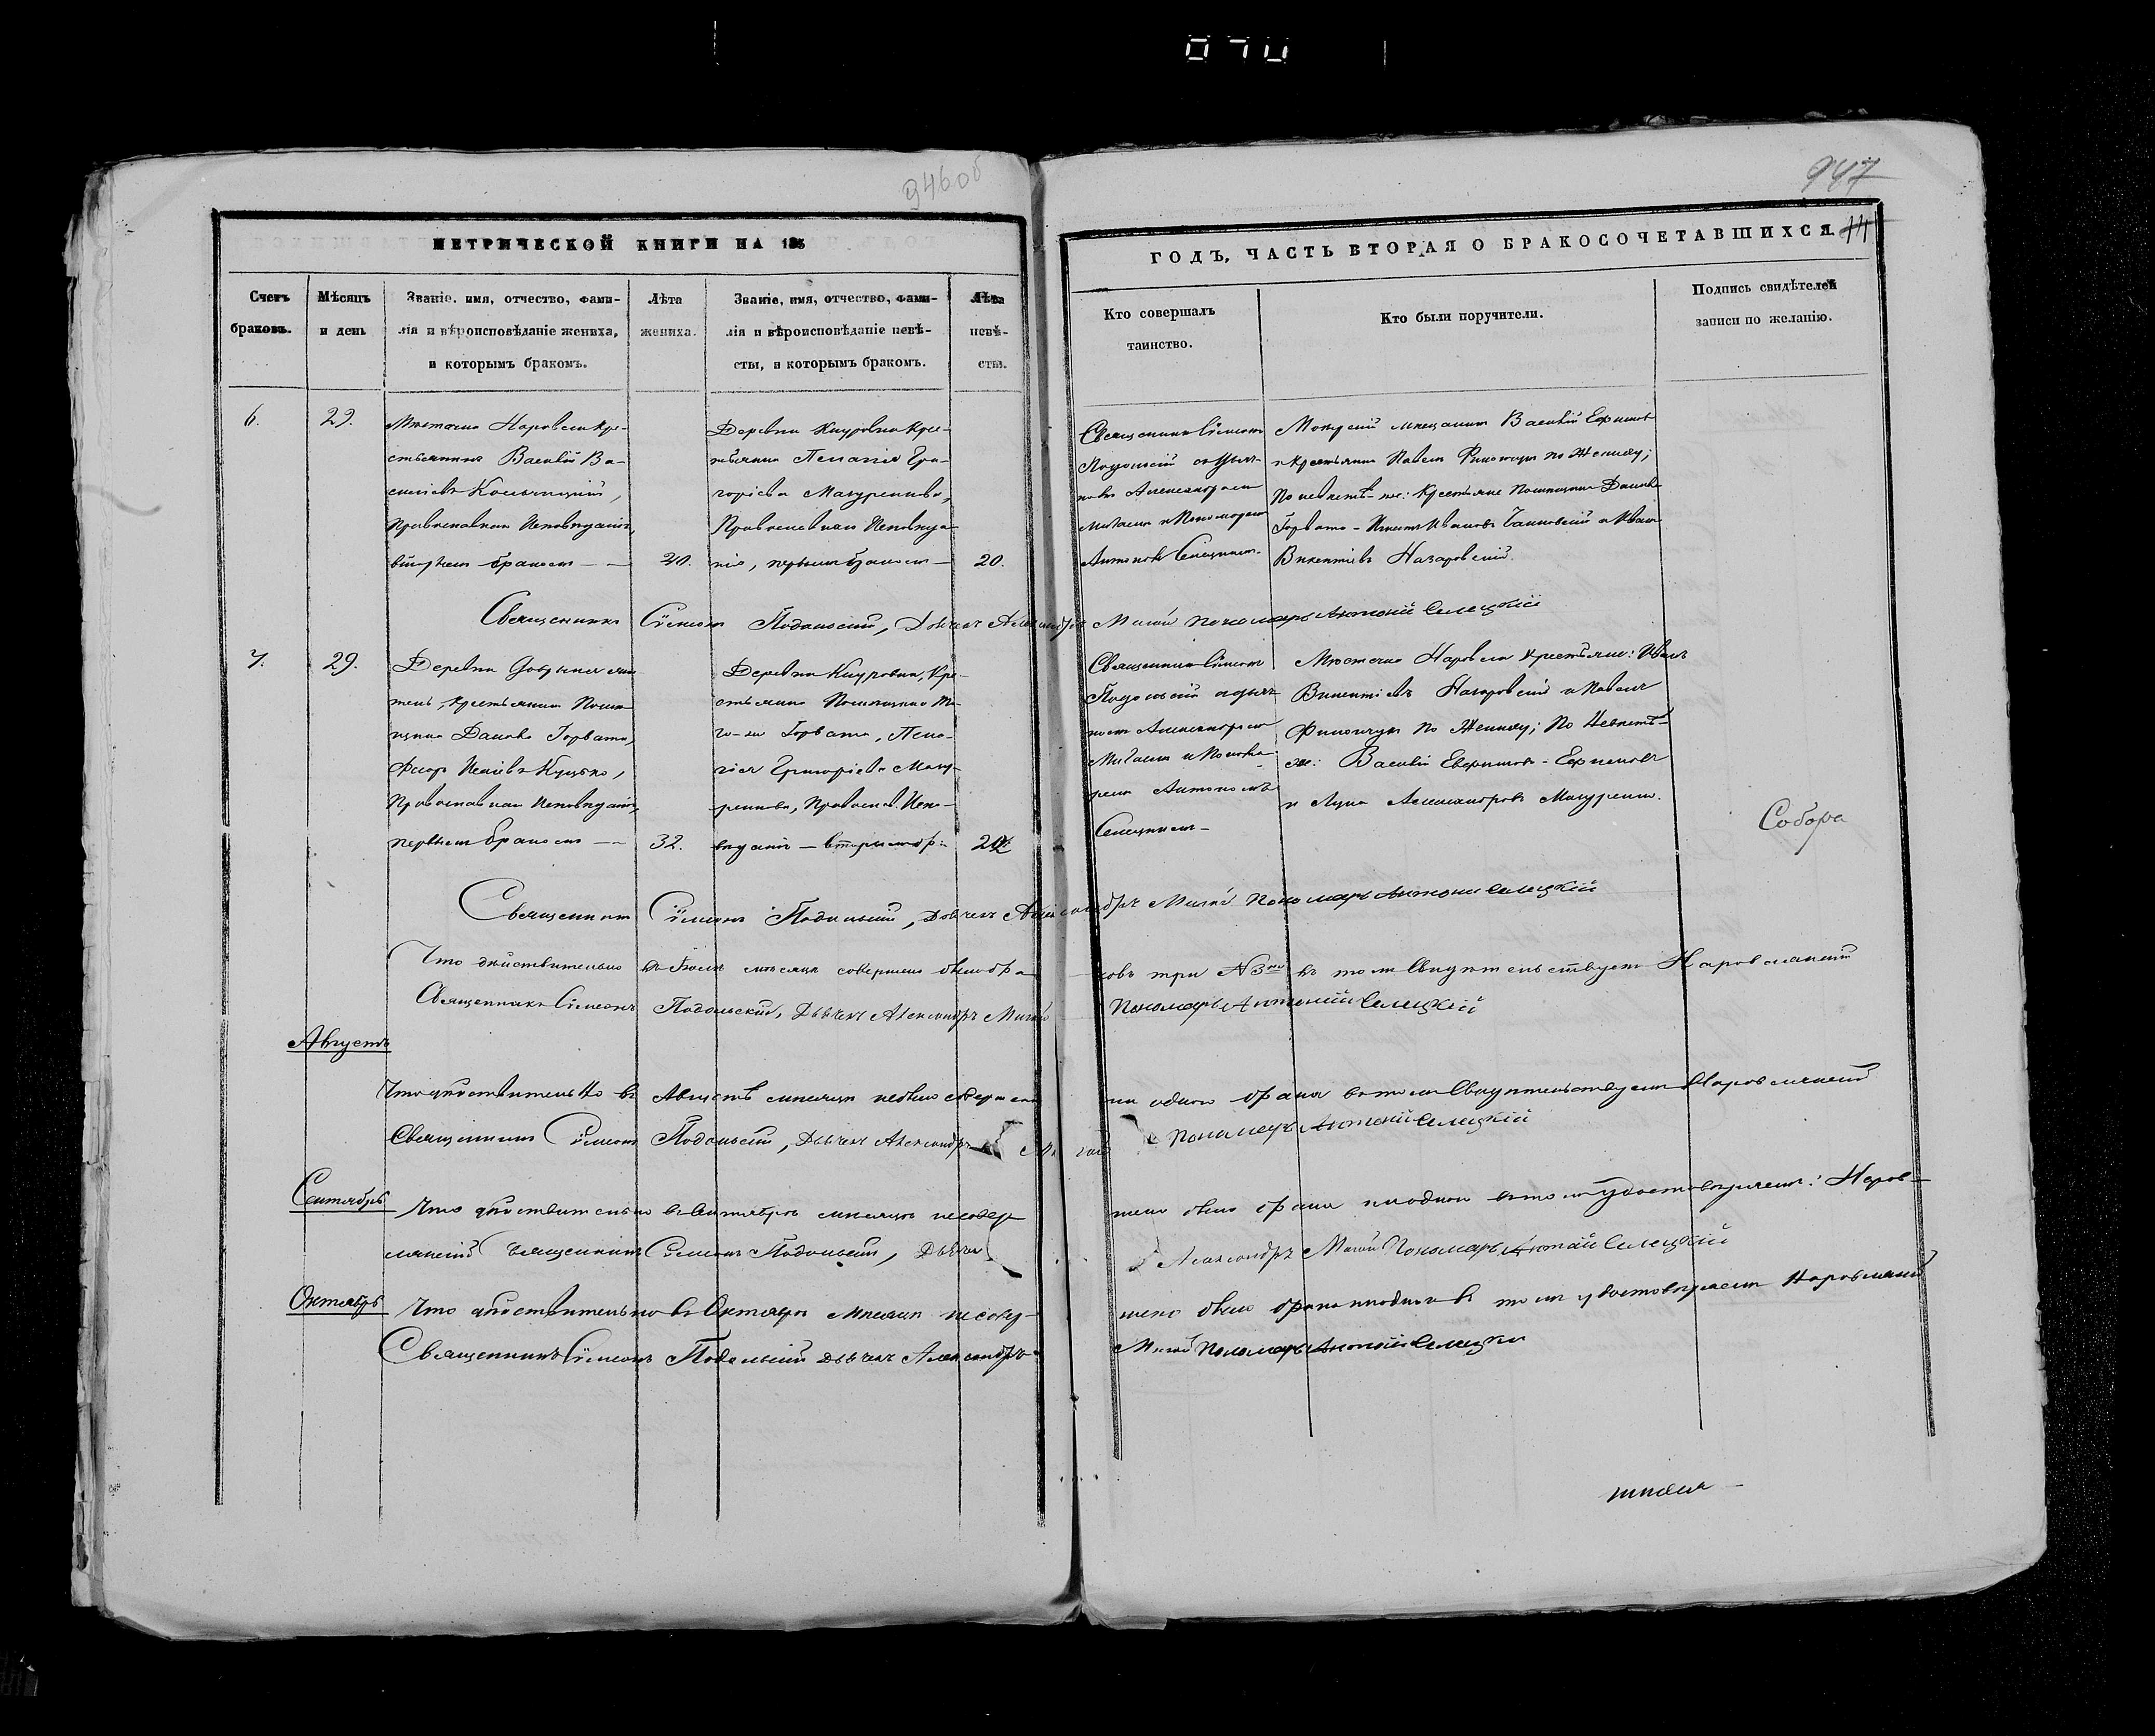 070
946об
947
МЕТРИЧЕСКОЙ КНИГИ НА 185
ГОДЪ, ЧАСТЬ ВТОРАЯ О БРАКОСОЧЕТАВШИХСЯ.
Счетъ браковъ.
Мѣсяцъ и день
Званіе, имя, отчество, фами-
лія и вѣроисповѣданіе жениха,
и которымъ бракомъ.
Лѣта жениха.
Званіе, имя, отчество, фами-
лія и вѣроисповѣданіе невѣ-
сты, и которымъ бракомъ.
Лѣта невѣ-
сты.
Кто совершалъ
таинство.
Кто были поручители.
Подпись свидѣтелей
записи по желанію.
6.
29.
Мѣстечка Наровли кре-
стьянинъ Василій Ва-
сильевъ
Православнаго Исповѣданія,
вторымъ бракомъ
Деревни Кнуровки Кре-
стьянка Пелагія Гри-
горіева
Православнаго Исповѣда-
нія, первымъ бракомъ
20.
Священникъ Сімеонъ
Подольскій съ Дьяч-
комъ Александромъ
Мигаемъ и Пономаремъ
Антономъ Селецкимъ
Мозырскій мѣщанинъ Василій
и Крестьянинъ Павелъ по Женихѣ;
По невѣстѣ-же: Крестьяне Помѣщика Даніила
Горвата - Ивановъ и Иванъ
Викентіевъ Назаровскій.
Священникъ Сімеонъ Подольскій, Дьячекъ Александръ Мигай Пономарь Антоній Селецкій
7.
29.
Деревни жи-
тель, крестьянинъ Помѣ-
щика Даніила Горвата,
Православнаго Исповѣданія,
первымъ бракомъ
32.
Деревни Кнуровки, Кре-
стьянка Помѣщика То-
го-же Горвата, Пела-
гія Григоріева
Православ. Испо-
вѣданія - вторымъ бр:
Священникъ Сімеонъ
Подольскій съ Дьяч-
комъ Александромъ
Мигаемъ и Понома-
ремъ Антономъ
Селецкимъ
Мѣстечка Наровли крестьяне: Иванъ
Викентіевъ Назаровскій и Павелъ
по Женихѣ; По Невѣстѣ-
же: Василій
и Лука Александровъ
Собора
Священникъ Сімеонъ Подольскій, Дьячекъ Александръ Мигай Пономарь Антоній Селецкій
Что дѣйствительно въ Іюлѣ мѣсяцѣ совершено было бра-
ковъ три №3 въ томъ Свидѣтельствуетъ Наровлянскій
Священникъ Сімеонъ Подольскій, Дьячекъ Александръ Мигай
Пономарь Антоній Селецкій
Августъ
Что дѣйствительно въ Августѣ мѣсяцѣ небыло совершено
ни одного брака въ томъ Свидѣтельствуетъ Наровлянскій
Священникъ Сімеонъ Подольскій, Дьячекъ Александръ Мигай
Пономарь Антоній Селецкій
Сентябрь
Что дѣйствительно въ Сентябрѣ мѣсяцѣ несовер-
шено было брака ниодного въ томъ удостовѣряемъ: Наров-
лянскій Священникъ Сімеонъ Подольскій, Дьячекъ
Александръ Мигай Пономарь Антоній Селецкій
Октябрь
Что дѣйствительно въ Октябрѣ мѣсяцѣ несовер-
шено было брака ниодного въ томъ удостовѣряемъ Наровлянскій
Священникъ Сімеонъ Подольскій Дьячекъ Александръ
Мигай Пономарь Антоній Селецкій